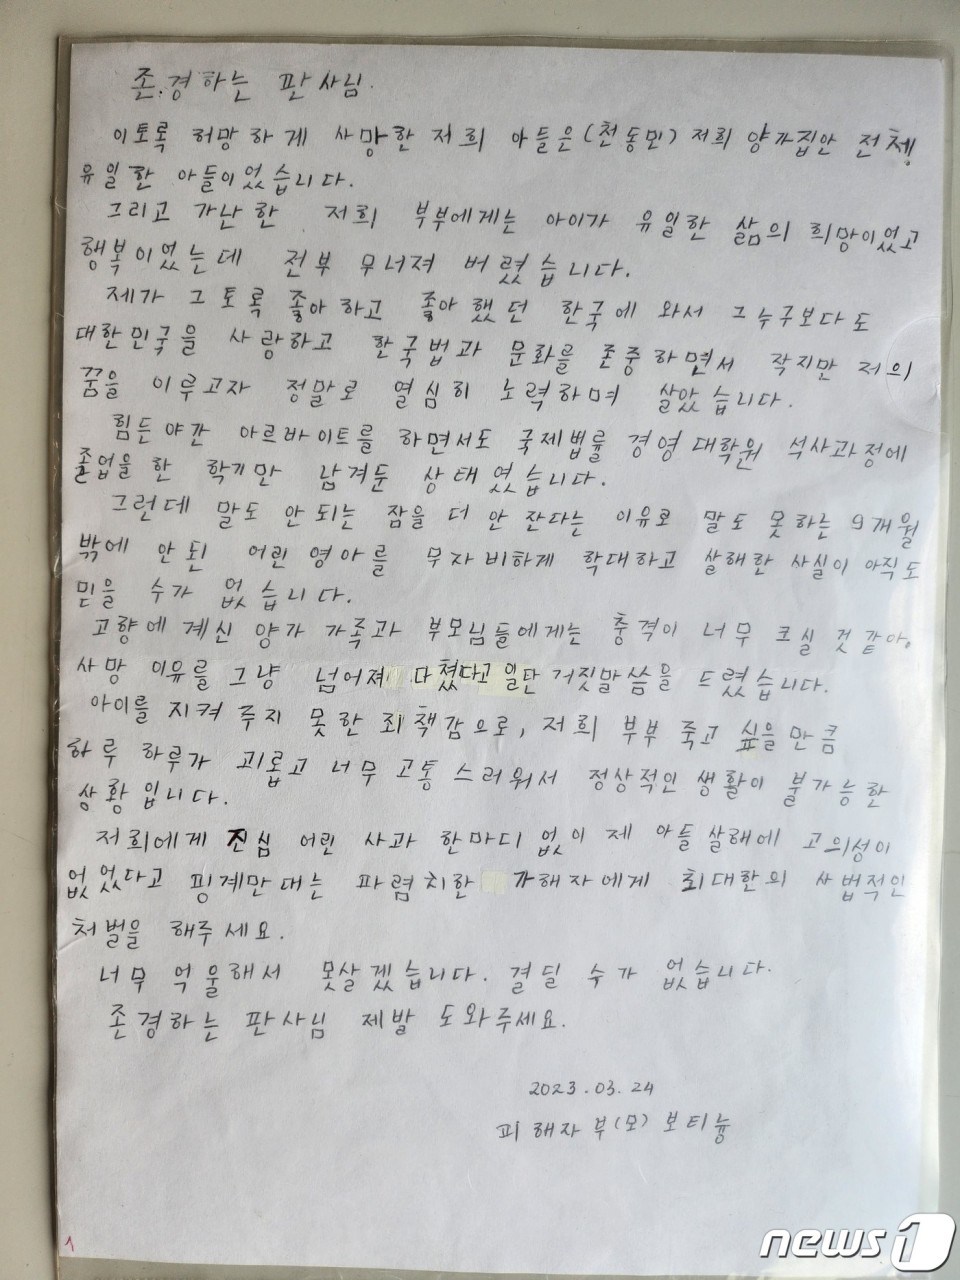 존경하는 판사님.
이토록 허망하게 사망한 저희 아들은(천동민) 저희 양가집안 전체
유일한 아들이었습니다.
그리고 가난한 저희 부부에게는 아이가 유일한 삶의 희망이었고
행복이었는데 전부 무너져 버렸습니다.
제가 그토록 좋아하고 좋아했던 한국에 와서 그누구보다도
대한민국을 사랑하고 한국법과 문화를 존중하면서 작지만 저의
꿈을 이루고자 정말로 열심히 노력하며 살았습니다.
힘든야간 아르바이트를 하면서도 국제법률 경영대학원 석사과정에
졸업을 한 학기만 남겨둔 상태였습니다.
그런데 말도 안 되는 잠을 더 안 잔다는 이유로 말도 못하는 9개월
밖에 안된 어린 영아를 무자비하게 학대하고 살해한 사실이 아직도
믿을 수가 없습니다.
고향에 계신 양가 가족과 부모님들에게는 충격이 너무 크실 것 같아,
사망 이유를 그냥 넘어져 다쳤다고 일단 거짓말씀을 드렸습니다.
아이를 지켜 주지 못한 죄책감으로, 저희 부부 죽고 싶을만큼
하루 하루가 괴롭고 너무 고통스러워서 정상적인 생활이 불가능한
상황입니다.
저희에게 진심 어린 사과 한마디 없이 제 아들 살해에 고의성이
없었다고 핑계만대는 파렴치한 가해자에게 최대한의 사법적인
처벌을 해주세요.
너무 억울해서 못살겠습니다. 견딜 수가 없습니다.
존경하는 판사님 제발 도와주세요.
2023.03.24
피해자 부(모) 보티늉
1
news1